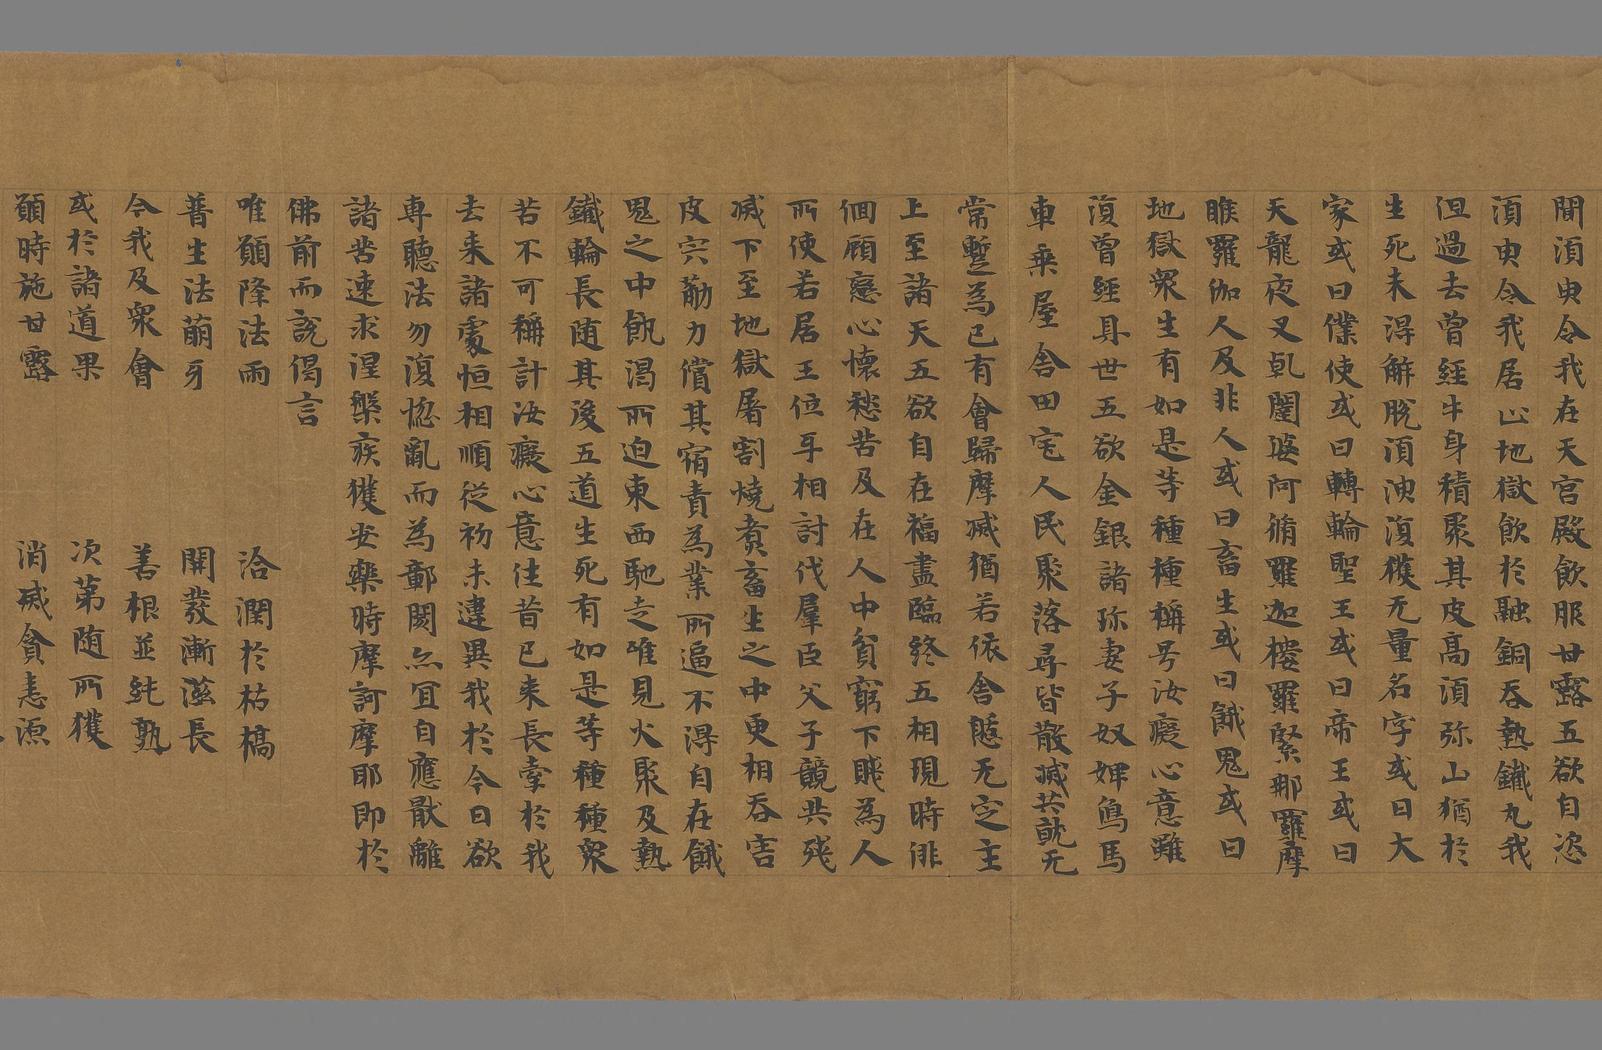 間湏臾令我在天宫殿飲服甘露五欲自恣
湏臾令我居止地獄飲於融銅吞熱鐵丸我
但過去曾經牛身積聚其皮高湏弥山猶於
生死未得解脫湏臾復獲无量名字或曰大
家或曰僕使或曰轉輪聖王或曰帝王或曰
天龍夜叉乹闥婆阿脩羅迦樓羅緊那羅摩
睺羅伽人及非人或曰畜生或曰餓鬼或曰
地獄衆生有如是等種種稱号汝癡心意雖
復曾經具世五欲金銀諸珎妻子奴婢鳥馬
車乗屋舎田宅人民聚落尋皆散滅共就无
常蹔為已有會歸摩滅猶若依舎愻无㝎主
上至諸天五欲自在福盡臨終五相現時俳
佪顧戀心懷愁苦及在人中貧窮下賎為人
所使若居王位㸦相討伐羣臣父子競共殘
滅下至地獄屠割燒煑畜生之中更相吞害
皮宍觔力償其宿責為業所逼不得自在餓
鬼之中飢渴所迫東西馳走唯見火聚及熱
鐵輪長随其後五道生死有如是等種種衆
苦不可稱計汝癡心意往昔已来長牽於我
去来諸處恒相順從初未違異我於今日欲
専聽法勿復惱亂而為鄣閡亦冝自應猒離
諸苦速求涅槃疾獲安樂時摩訶摩耶即於
佛前而說偈言
唯願降法雨　　　洽潤於枯槁
普生法萠牙　　　開發漸滋長
令我及衆會　　　善根並純熟
或於諸道果　　　次第随所獲
願時施甘露　　　消滅貪恚源